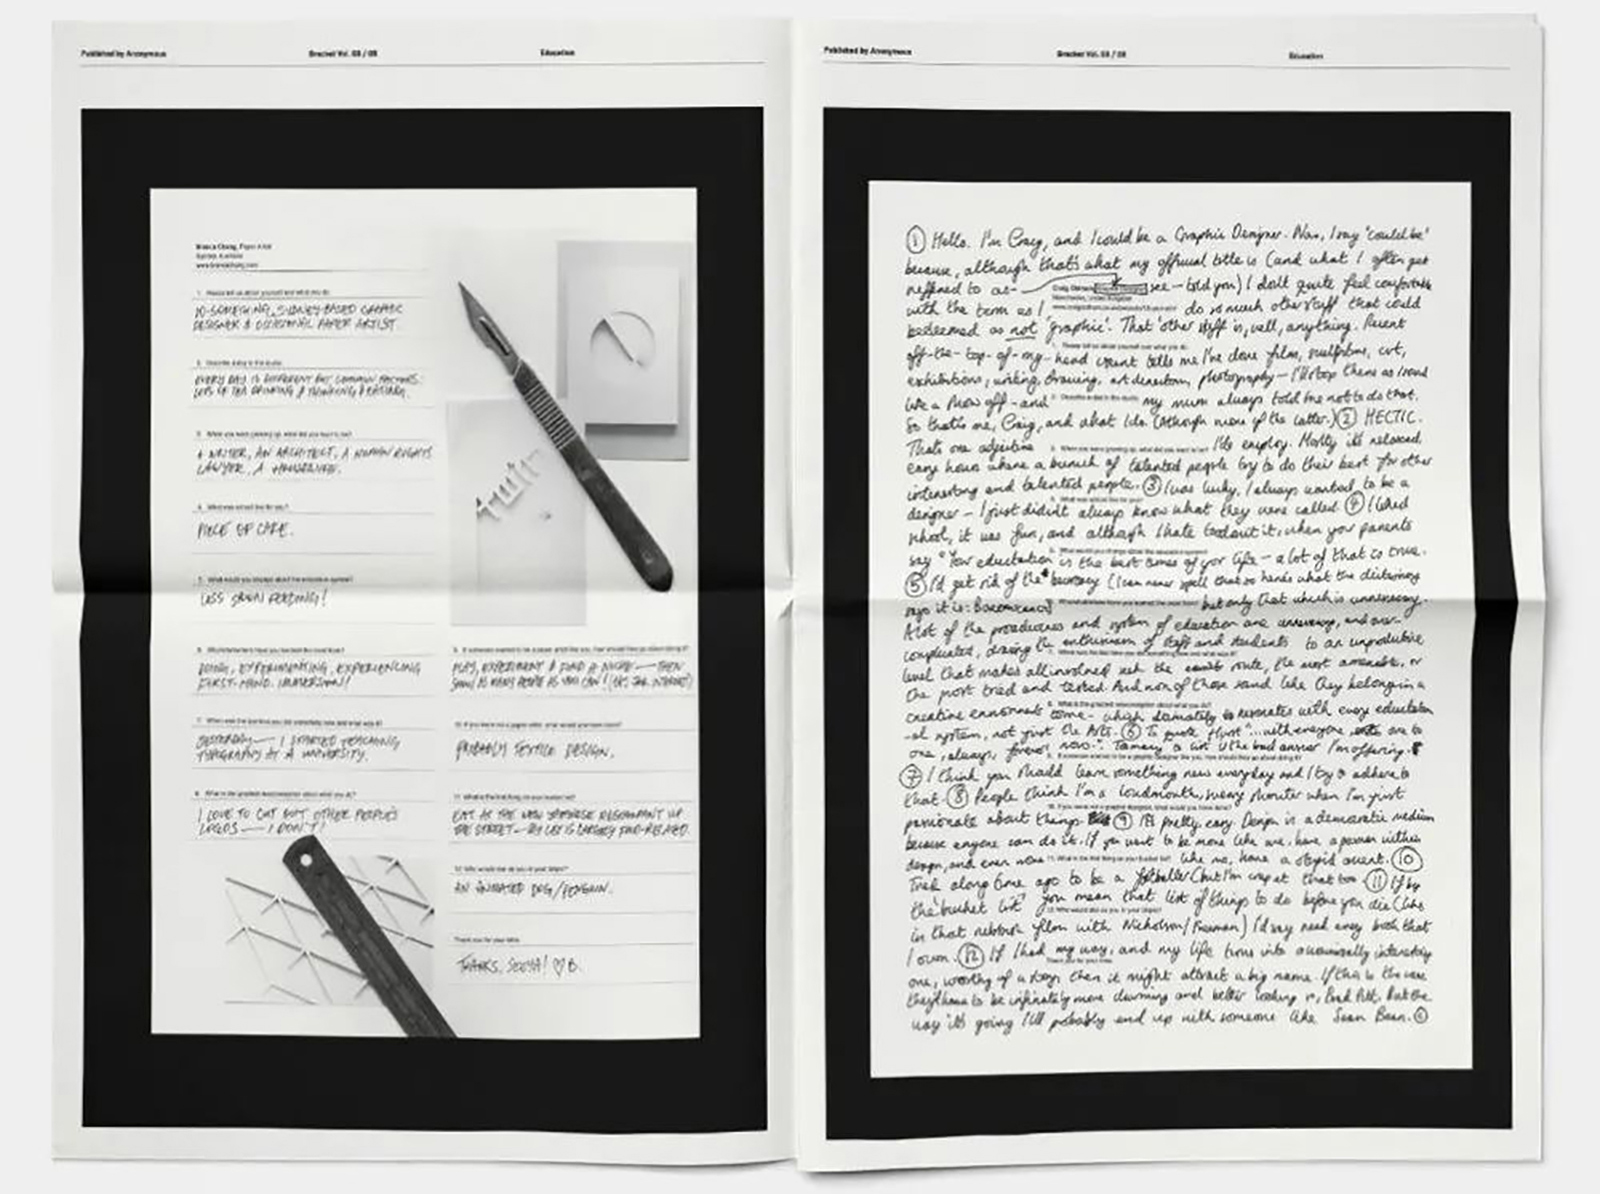 Published by Anonymous
Bracket Vol. 03 / 03
Education
Bianca Chang, Paper Artist
Sydney, Australia
www.biancachang.com
1. Please tell us about yourself and what you do.
20-SOMETHING, SYDNEY-BASED GRAPHIC
DESIGNER & OCCASIONAL PAPER ARTIST.
2. Describe a day in the studio.
EVERY DAY IS DIFFERENT BUT COMMON FACTORS:
LOTS OF TEA DRINKING & THINKING & EATING.
3. When you were growing up, what did you want to be?
A WRITER, AN ARCHITECT, A HUMAN RIGHTS
LAWYER, A
4. What was school like for you?
PIECE OF CAKE.
5. What would you change about the education system?
LESS SPOON FEEDING!
6.
DOING, EXPERIMENTING, EXPERIENCING
FIRST-HAND. IMMERSION!
7. When was the last time you did something new and what was it?
YESTERDAY — I STARTED TEACHING
TYPOGRAPHY AT A UNIVERSITY.
8. What is the greatest misconception about what you do?
I LOVE TO CUT OUT OTHER PEOPLE'S
LOGOS — I DON'T!
9. If someone wanted to be a paper artist like you, how should they go about doing it?
PLAY, EXPERIMENT & FIND A NICHE — THEN
SHOW AS MANY PEOPLE AS YOU CAN! (USE THE INTERNET)
10. If you were not a paper artist, what would you have done?
PROBABLY TEXTILE DESIGN.
11. What is the first thing on your bucket list?
EAT AT THE NEW JAPANESE RESTAURANT UP
THE STREET — MY LIST IS LARGELY FOOD-RELATED.
12. Who would star as you in your biopic?
AN ANIMATED DOG/PENGUIN.
Thank you for your time.
THANKS, ♡B.
Published by Anonymous
Bracket Vol. 03 / 03
Education
1 Hello. I'm Craig, and I could be a Graphic Designer. Now, I say 'could be'
because, although that's what my official title is (and what I often get
referred to as - see - told you) I don't quite feel comfortable
with the term as I do so much other stuff that could
be deemed as not 'graphic'. That 'other stuff' is, well, anything. Recent
off-the-top-of-my-head count tells me I've done film, sculpture, art,
exhibitions, writing, drawing, art direction, photography - I'll stop there as I sound
like a show off - and my mum always told me not to do that.
So that's me, Craig, and what I do. (although more of the latter.) 2 HECTIC.
That's one adjective I'd employ. Mostly it's relaxed
easy hours where a bunch of talented people try to do their best for other
interesting and talented people. 3 I was lucky. I always wanted to be a
designer - I just didn't always know what they were called. 4 I liked
school, it was fun, and although I hate to admit it, when your parents
say "Your education is the best times of your life - a lot of that is true.
5 I'd get rid of the (I can never spell that so here's what the dictionary
says it is: but only that which is unnecessary.
A lot of the procedures and system of education are unnecessary, and over-
complicated, driving the enthusiasm of staff and students to an unproductive
level that makes all involved seek the route, the most amenable, or
the most tried and tested. And non of those sound like they belong in a
creative environment to me - which ultimately resonates with every education
-al system, not just the Arts. 6 To quote "...with everyone are to
one, always, forever, now". is the bad answer I'm offering.
7 I think you should learn something new everyday and I try to adhere to
that. 8 People think I'm a loudmouth, sweary shouter when I'm just
passionate about things 9 It's pretty easy. Design is a democratic medium
because anyone can do it. If you want to be more like me, have a passion within
design, and even more like me, have a stupid accent. 10
Tried along time ago to be a footballer (but I'm crap at that too. 11 If by
the 'bucket list' you mean that list of things to do before you die (like
in that film with Nicholson/Freeman) I'd say need every both that
I own. 12 If I had my way, and my life turns into a interesting
one, worthy of a then it might attract a big name. If this is the case
they'll have to be infinitely more charming and better looking so, Brad Pitt. But the
way it's going I'll probably end up with someone like Sean Bean.